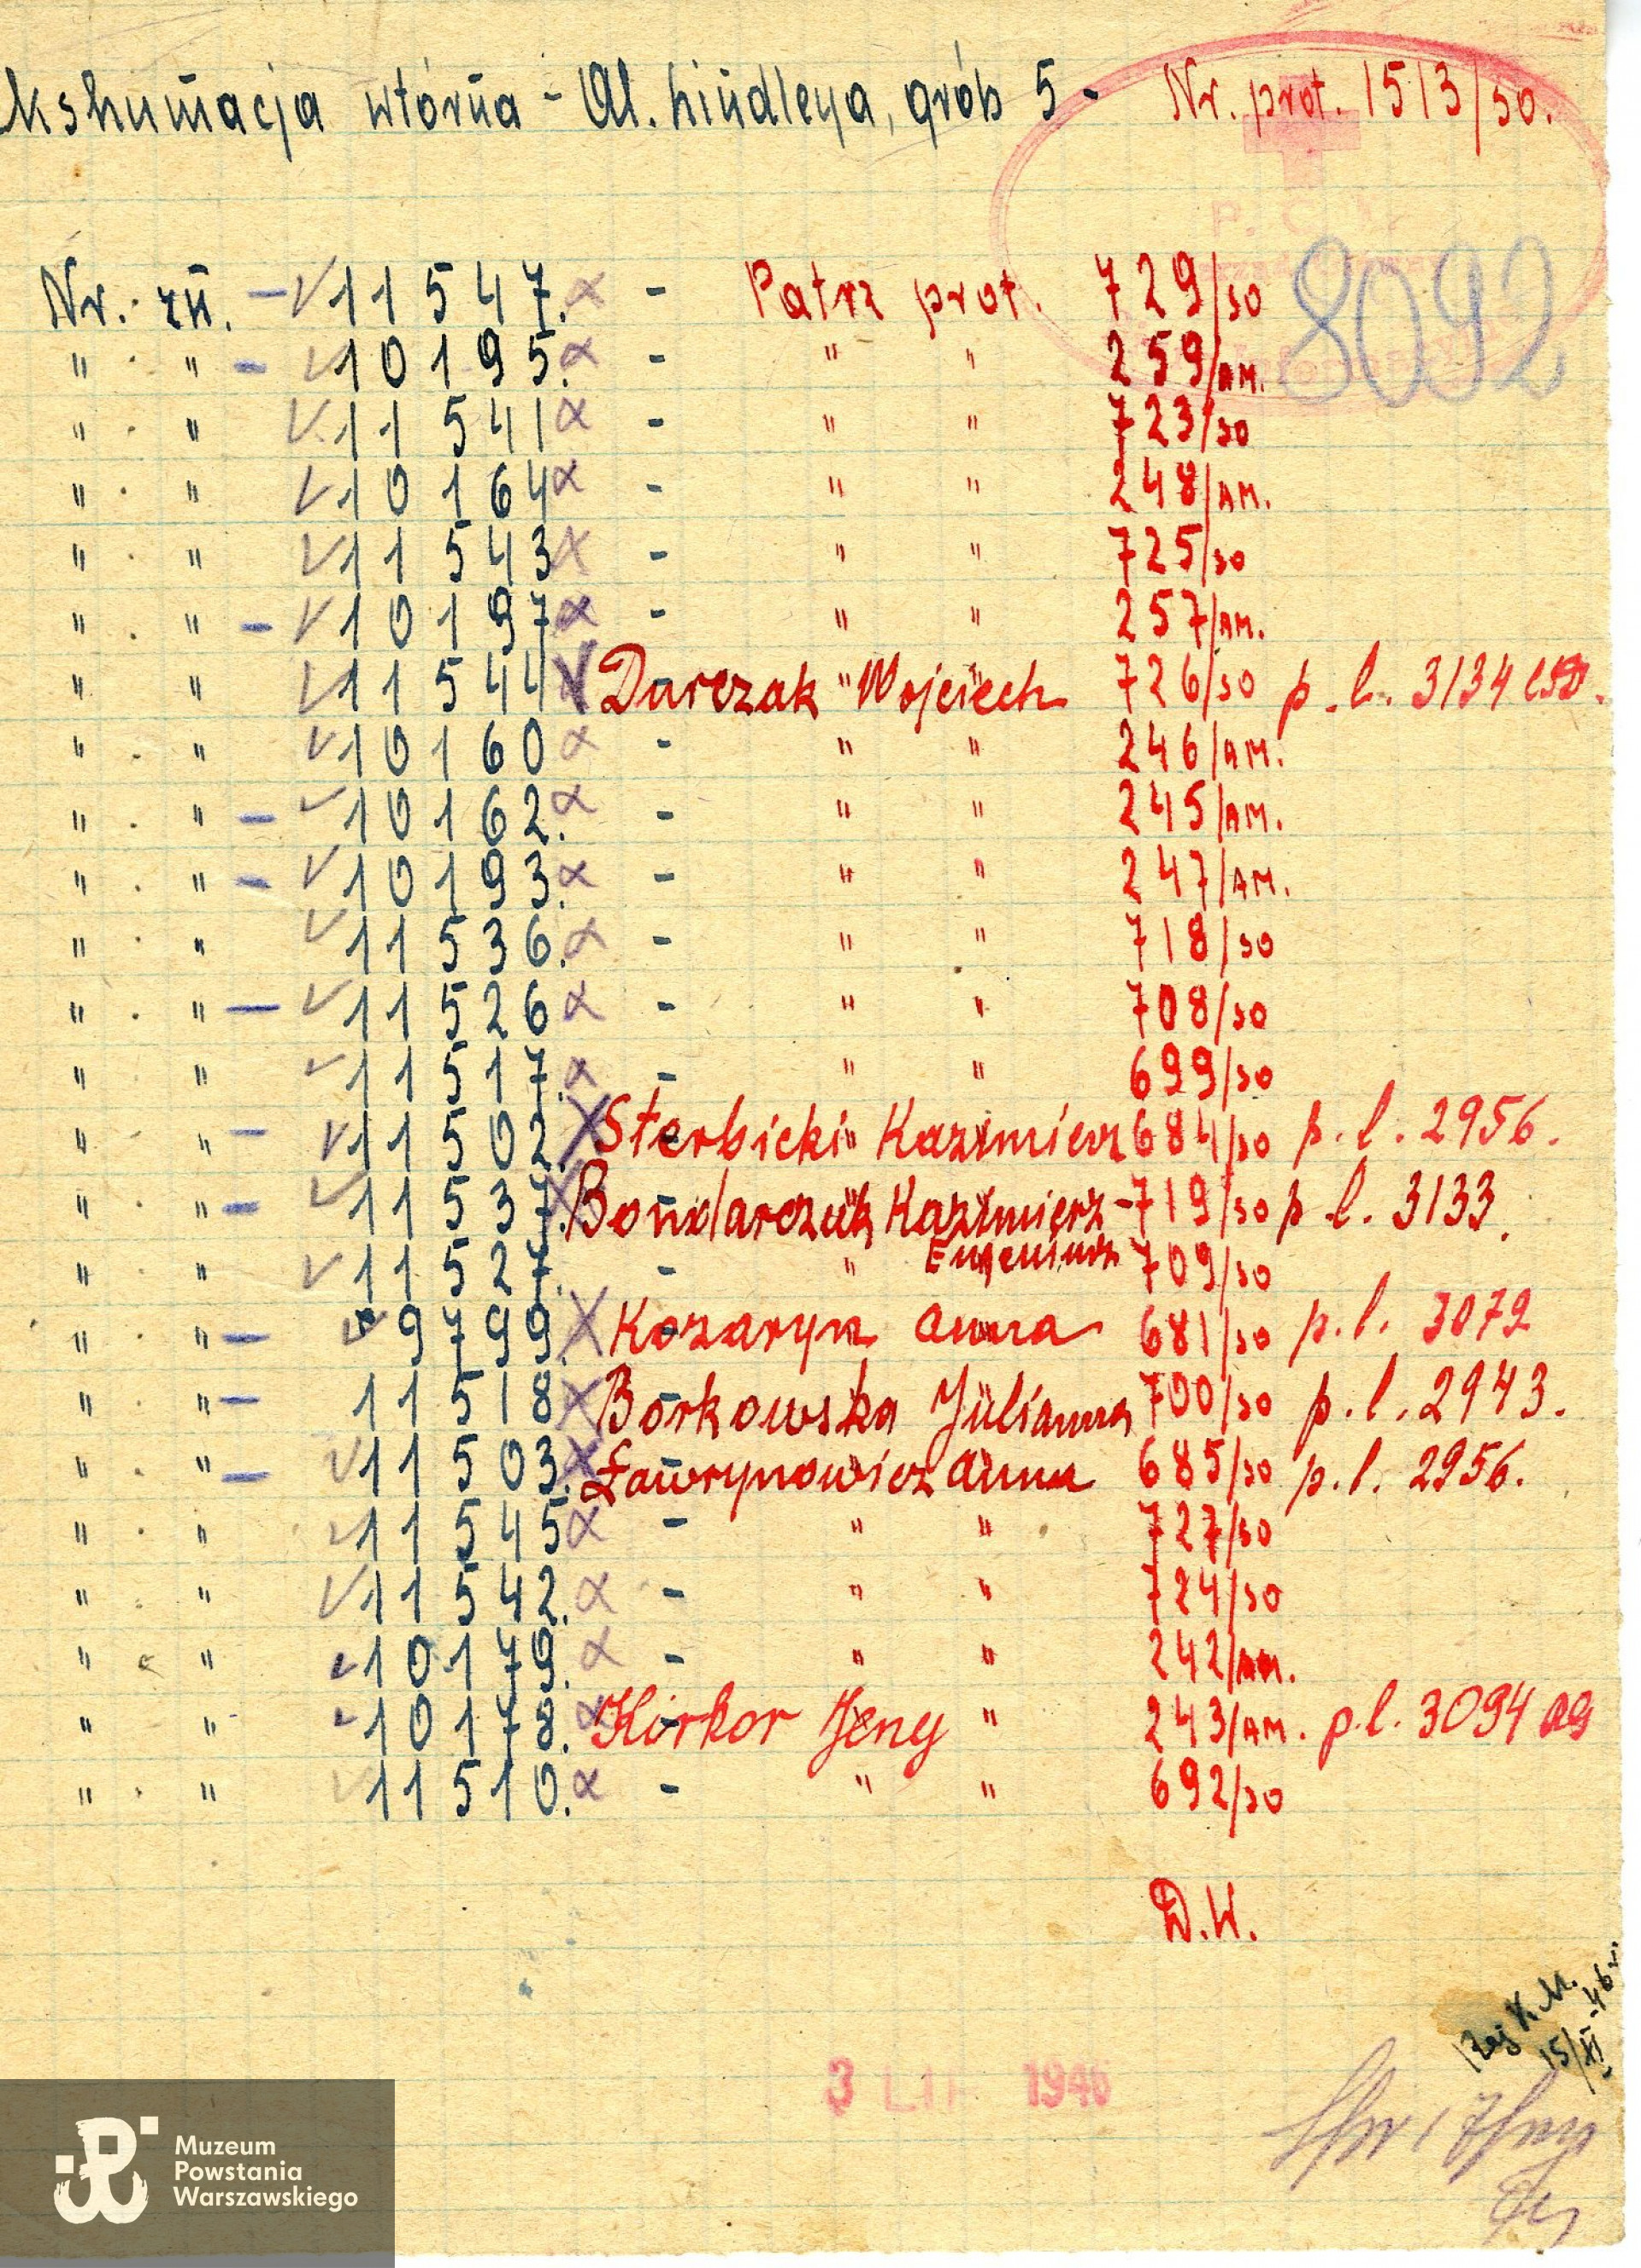 kshumacja wtórna - Al. Lindleya, grób 5 - Nr. prot. 1513/50.
P. C. K.
8092
Nr. zn. - 11547. - Patrz prot. 729/50
" . " - 10195. - " " 259/AM.
" . " 11541 - " " 723/50
" . " 10164 - " " 248/AM.
" . " 11543 - " " 725/50
" . " - 10197 - " " 257/AM.
" . " 11544 - Darczak " Wojciech " 726/50 p. l. 3134
" . " 10160 - " " 246/AM.
" . " - 10162. - " " 245/AM.
" . " - 10193. - " " 247/AM.
" . " 11536. - " " 718/50
" . " - 11526 - " " 708/50
" . " 11517. - " " 699/50
" . " - 11502. Sterbicki " Kazimierz 684/50 p. l. 2956.
" . " - 11537. Bondarczuk Kazimierz - 719/50 p. l. 3133.
" . " 11527. - " Eugeniusz 709/50
" . " - 9799. Kozaryn Anna 681/50 p. l. 3079
" . " - 11518 Borkowska Julianna 700/50 p. l. 2943.
" . " - 11503. Ławrynowicz Anna 685/50 p. l. 2956.
" . " 11545 - " " 727/50
" . " 11542. - " " 724/50
" . " 10179. - " " 242/AM.
" . " 10178. Kirkor Jeny " 243/AM. p. l. 3094
" . " 11510. - " " 692/50
D.W.
15/XI-46 r.
3 LIP 1946
Muzeum
Powstania
Warszawskiego